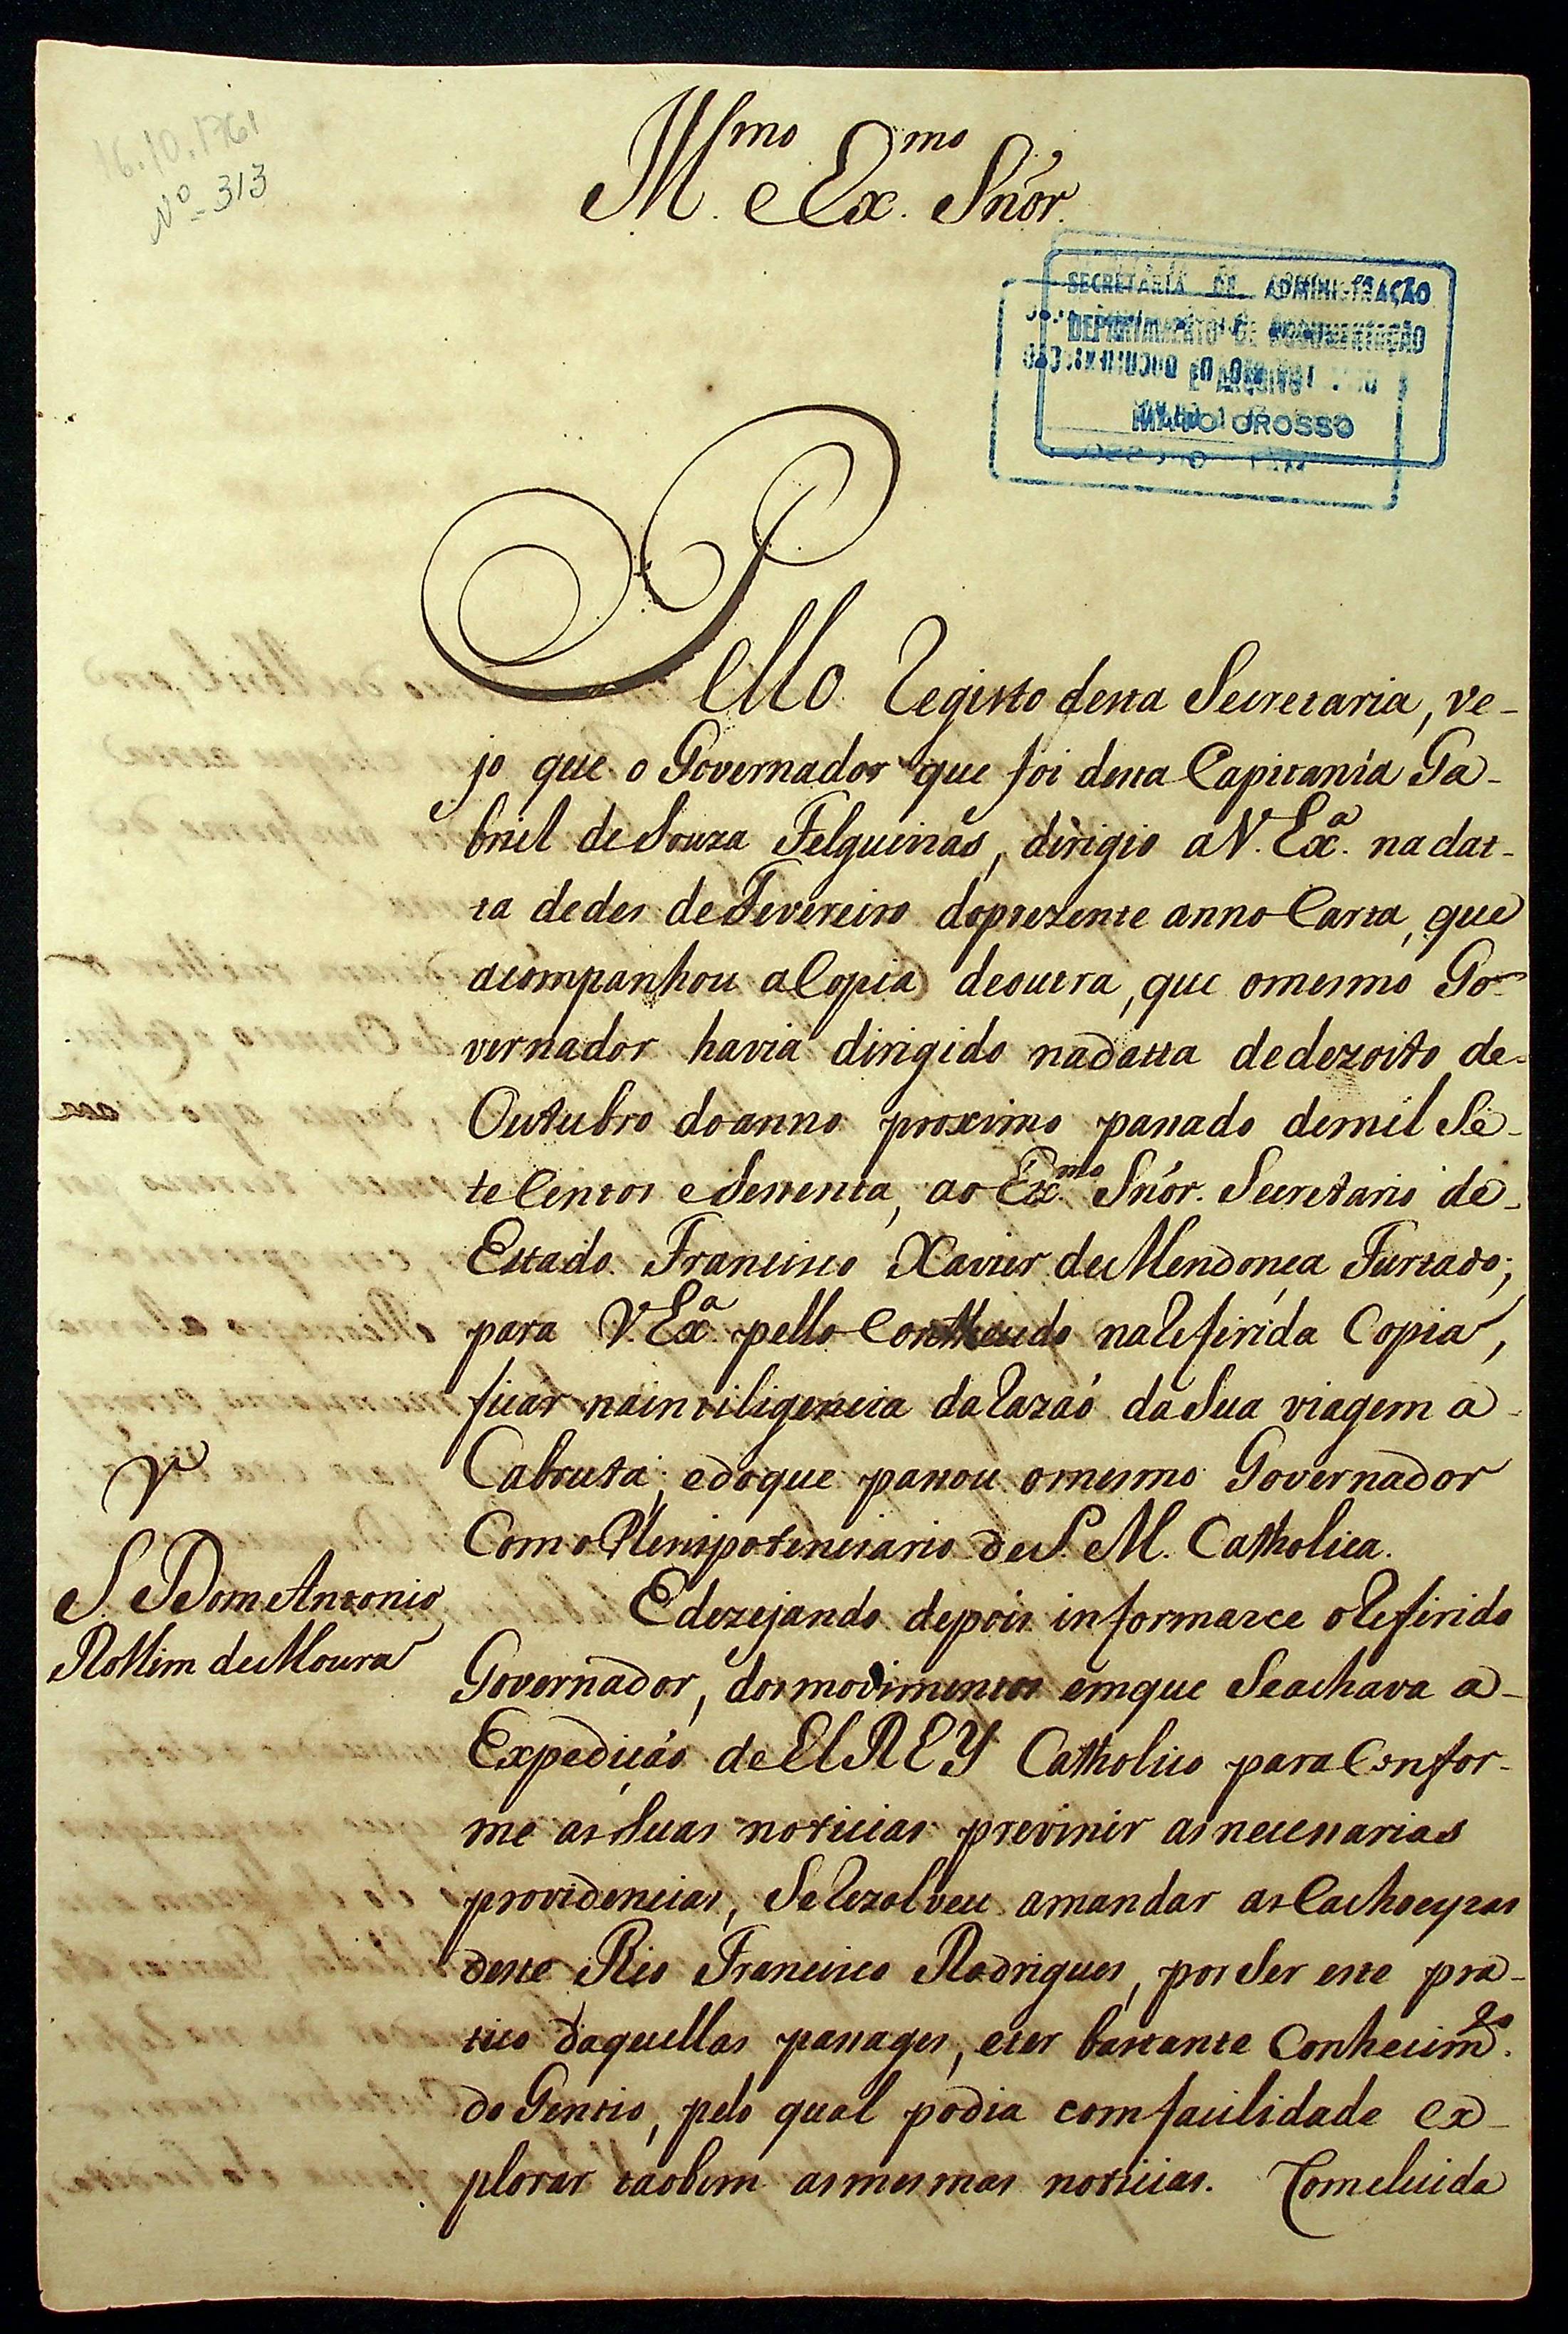 16.10.1761
Nº 313
Illmo. e Exmo. Snõr.
SECRETARIA DE ADMINISTRAÇÃO
DEPARTAMENTO DE DOCUMENTAÇÃO
E ARQUIVO
MATO GROSSO
Pello Registo desta Secretaria, ve-
jo que o Governador que foi desta Capitanía Ga-
briel de Souza Felgueiras, dirigio a V. Exª. na dat-
ta de des de Fevereiro do prezente anno Carta, que
acompanhou a Copia de outra, que o mesmo Go-
vernador havia dirigido na datta de dezoito de
Outubro do anno proximo passado de mil Se-
te Centos e Sessenta, ao Exmo. Snõr. Secretario de
Estado Francisco Xavier de Mendonça Furtado;
para V. Exª. pello Contheudo na Referida Copia,
ficar na inteiligencia da Razaõ da Sua viagem a
Cabruta; e do que passou o mesmo Governador
Com o Plenipotenciario de S. M. Catholica.
E dezejando depois informarce o Referido
Governador, dos movimentos em que Se achava a
Expediçaõ de El REY Catholico para Confor-
me as Suas noticias previnir as necessarias
providencias, Se Rezolveu a mandar as Cachoeyras
deste Rio Francisco Rodrigues, por Ser este pra-
tico daquellas passages, e ter bastante Conhecimto.
do Gentio, pelo qual podia com facilidade ex-
plorar taobem as mesmas noticias. Comcluida
S. Dom Antonio
Rollim de Moura